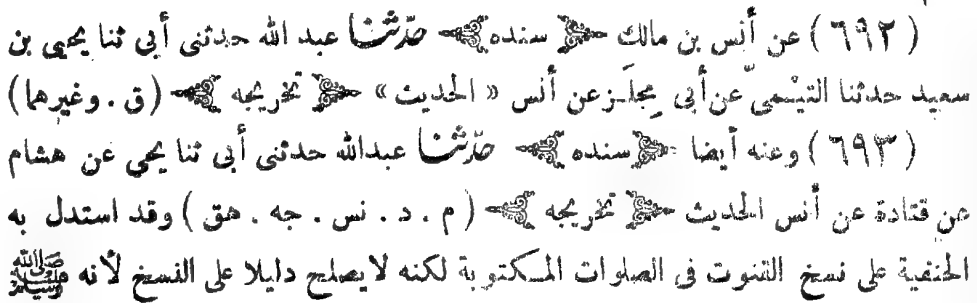 (٦٩٢) عن أنس بن مالك سنده حدّثنا عبد الله حدثنى أبى ثنا يحيى بن
سعيد حدثنا التيْمىّ عن أبى مِجلَز عن أنس « الحديث » تخريجه (ق . وغيرهما)
(٦٩٣) وعنه أيضا سنده حدّثنا عبدالله حدثنى أبى ثنا يحيى عن هشام
عن قتادة عن أنس الحديث تخريجه (م . د . نس . جه . هق) وقد استدل به
الحنفية على نسخ القنوت فى الصلوات المكتوبة لكنه لا يصلح دليلا على النسخ لأنه ﷺ